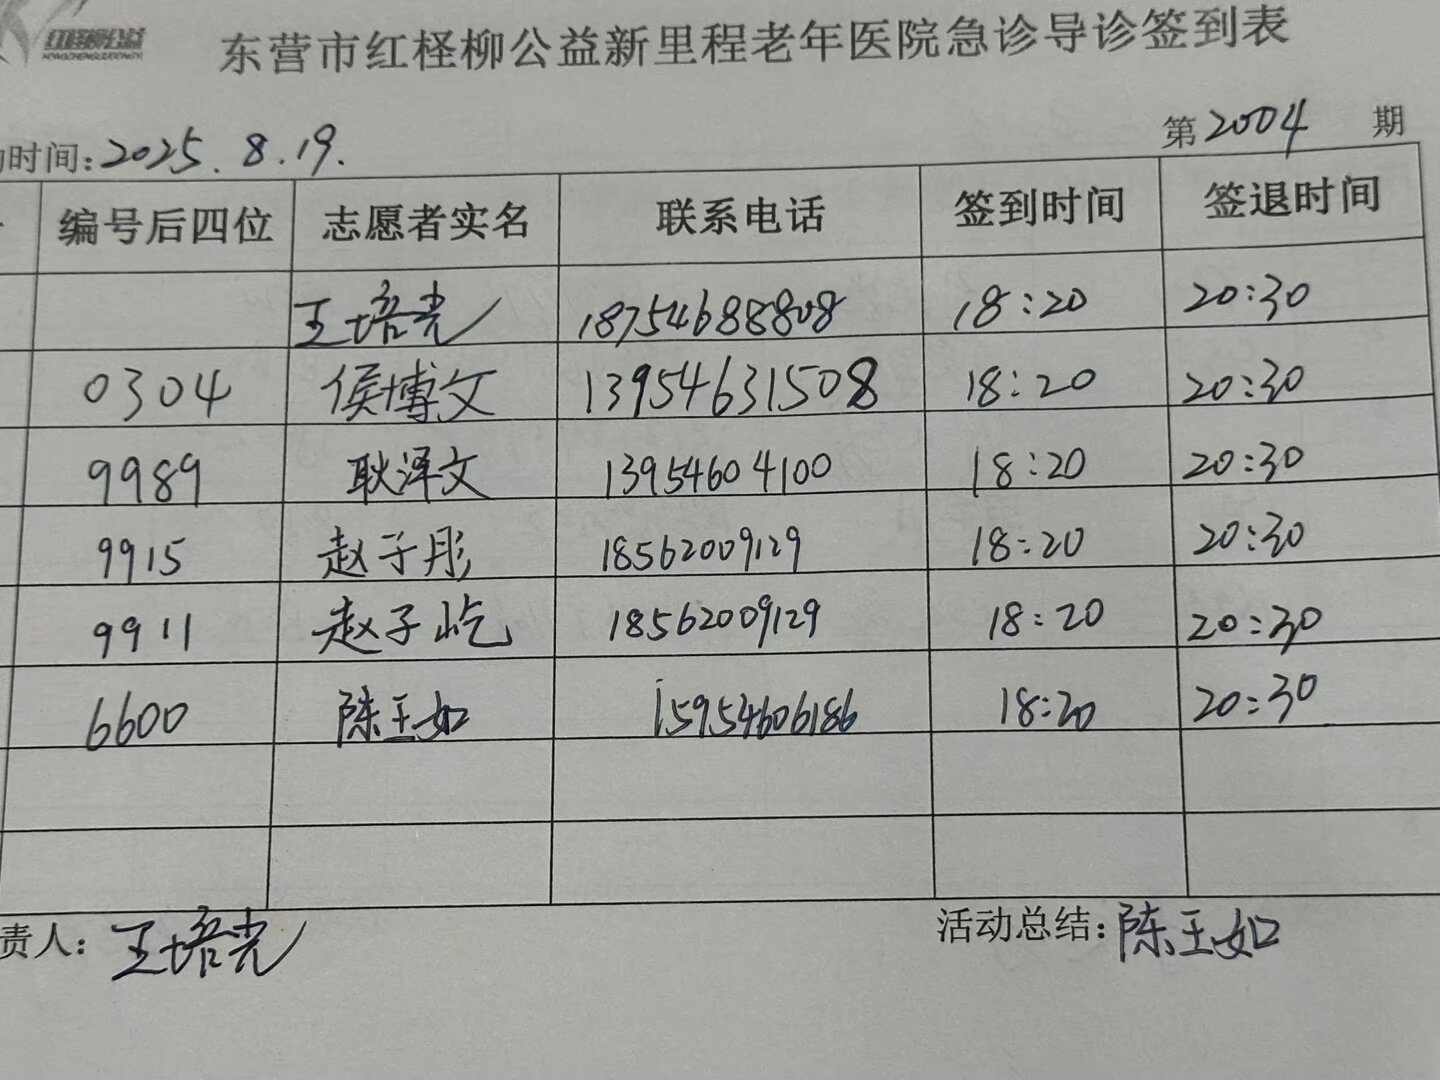 红柽柳公益
东营市红柽柳公益新里程老年医院急诊导诊签到表
时间:2025.8.19.
第2004 期
编号后四位 志愿者实名 联系电话 签到时间 签退时间
王培光 18754688808 18:20 20:30
0304 侯博文 13954631508 18:20 20:30
9989 耿泽文 13954604100 18:20 20:30
9915 赵子彤 18562009129 18:20 20:30
9911 赵子屹 18562009129 18:20 20:30
6600 陈玉如 15954606186 18:20 20:30
责人:王培光
活动总结:陈玉如